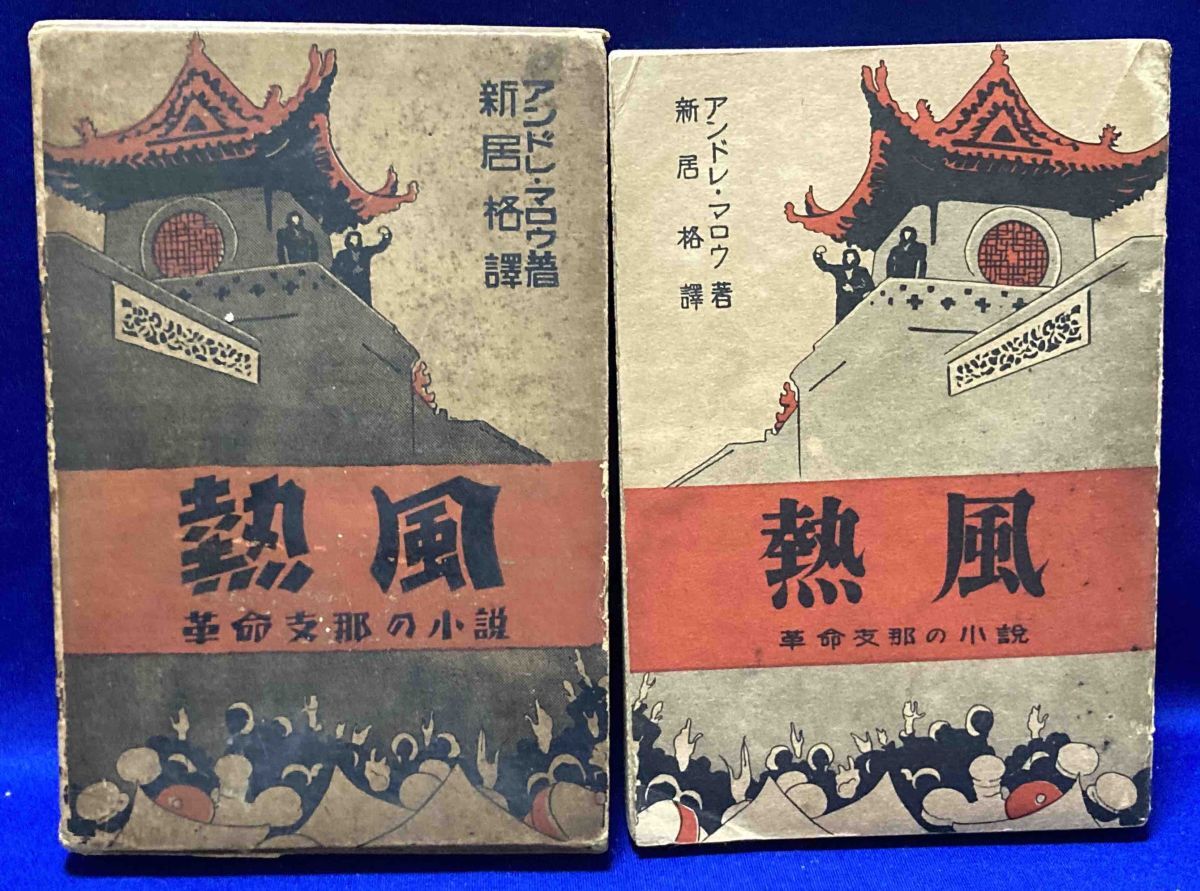 アンドレ・マロウ著
新居格譯
熱風
革命支那の小説
アンドレ・マロウ著
新居格譯
熱風
革命支那の小説